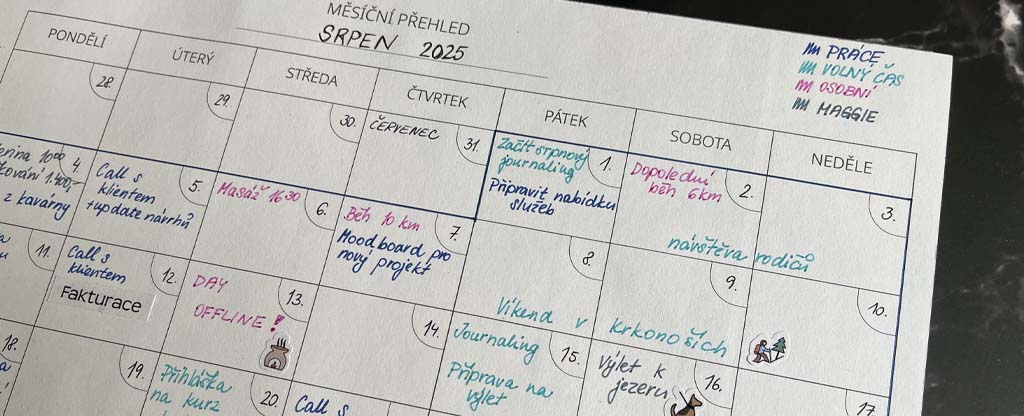 MĚSÍČNÍ PŘEHLED
SRPEN 2025
PRÁCE
VOLNÝ ČAS
OSOBNÍ
MAGGIE
PONDĚLÍ
ÚTERÝ
STŘEDA
ČTVRTEK
PÁTEK
SOBOTA
NEDĚLE
28.
29.
30.
ČERVENEC 31.
Začít srpnový
journaling 1.
Připravit nabídku
služeb
Dopolední
běh 6 km 2.
3.
návštěva rodičů
10⁰⁰ 4.
1.400,-
z kavárny
Call s 5.
klientem
+update návrhů
Masáž 16³⁰ 6.
Běh 10 km 7.
Moodboard pro
nový projekt
8.
9.
10.
Víkend v Krkonoších
11.
Call s 12.
klientem
Fakturace
DAY 13.
OFFLINE!
14.
Journaling 15.
Příprava na
výlet
Výlet k 16.
jezeru
17.
18.
19.
Přihláška 20.
na kurz
Call s